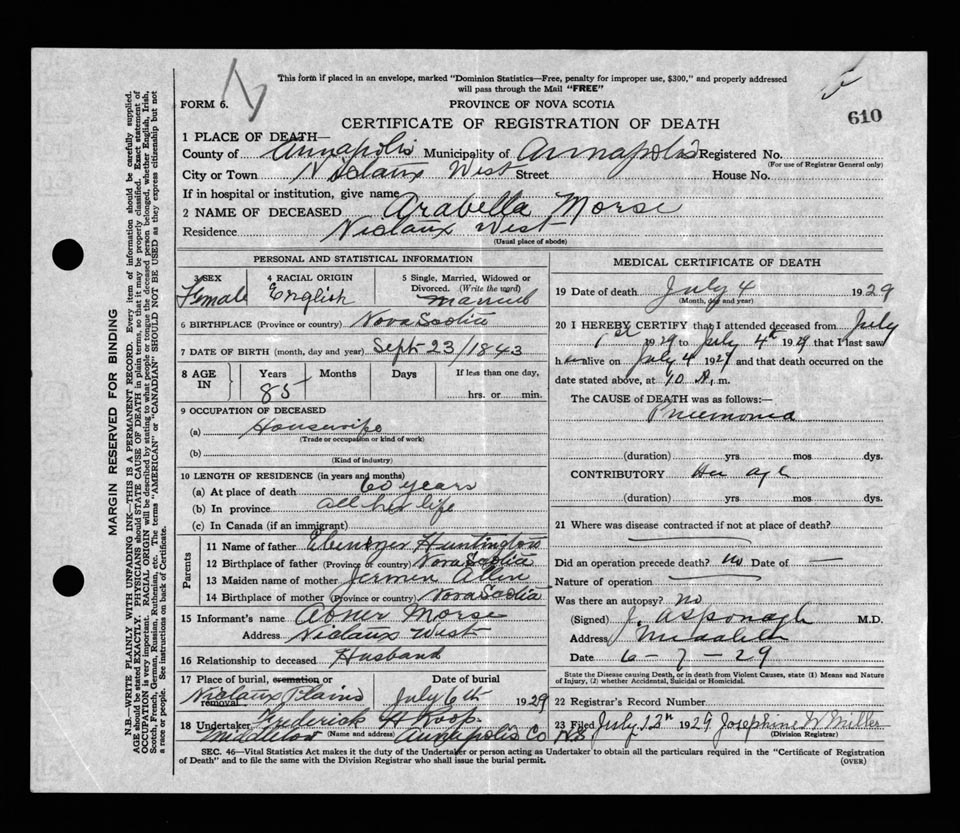 This form if placed in an envelope, marked "Dominion Statistics—Free, penalty for improper use, $300," and properly addressed
will pass through the Mail "FREE"
FORM 6. PROVINCE OF NOVA SCOTIA
610
CERTIFICATE OF REGISTRATION OF DEATH
1 PLACE OF DEATH—
County of Annapolis Municipality of Annapolis Registered No.
(For use of Registrar General only)
City or Town Nictaux West Street House No.
If in hospital or institution, give name
2 NAME OF DECEASED Arabella Morse
Residence Nictaux West
(Usual place of abode)
PERSONAL AND STATISTICAL INFORMATION
3 SEX Female 4 RACIAL ORIGIN English 5 Single, Married, Widowed or
Divorced. (Write the word) married
6 BIRTHPLACE (Province or country) Nova Scotia
7 DATE OF BIRTH (month, day and year) Sept 23/1843
8 AGE IN Years 85 Months Days If less than one day,
hrs. or min.
9 OCCUPATION OF DECEASED
(a) Housewife
(Trade or occupation or kind of work)
(b)
(Kind of industry)
10 LENGTH OF RESIDENCE (in years and months)
(a) At place of death 60 years
(b) In province all her life
(c) In Canada (if an immigrant)
Parents
11 Name of father Ebenezer Huntington
12 Birthplace of father (Province or country) Nova Scotia
13 Maiden name of mother Allen
14 Birthplace of mother (Province or country) Nova Scotia
15 Informant's name Abner Morse
Address Nictaux West
16 Relationship to deceased Husband
17 Place of burial, cremation or removal Nictaux Plains Date of burial July 6th 1929
18 Undertaker Frederick H Roop
(Name and address) Middleton Annapolis Co NS
MEDICAL CERTIFICATE OF DEATH
19 Date of death July 4 1929
(Month, day and year)
20 I HEREBY CERTIFY that I attended deceased from July
1st 1929 to July 4th 1929 that I last saw
her alive on July 4 1929 and that death occurred on the
date stated above, at 10 A. m.
The CAUSE of DEATH was as follows:—
Pneumonia
(duration) yrs mos dys.
CONTRIBUTORY Her age
(duration) yrs mos dys.
21 Where was disease contracted if not at place of death?
Did an operation precede death? no Date of —
Nature of operation
Was there an autopsy? no
(Signed) M.D.
Address Middleton
Date 6-7-29
State the Disease causing Death, or in Death from Violent Causes, state (1) Means and Nature
of Injury, (2) whether Accidental, Suicidal or Homicidal.
22 Registrar's Record Number
23 Filed July 13th 1929 Josephine W Miller
(Division Registrar)
SEC. 46—Vital Statistics Act makes it the duty of the Undertaker or person acting as Undertaker to obtain all the particulars required in the "Certificate of Registration
of Death" and to file the same with the Division Registrar who shall issue the burial permit.
(OVER)
MARGIN RESERVED FOR BINDING
N.B.—WRITE PLAINLY WITH UNFADING INK—THIS IS A PERMANENT RECORD. Every item of information should be carefully supplied.
AGE should be stated EXACTLY. PHYSICIANS should STATE CAUSE OF DEATH in plain terms, so that it may be properly classified. Exact statement of
OCCUPATION is very important. RACIAL ORIGIN will be described by stating to what people or tongue the deceased person belonged, whether English, Irish,
Scotch, French, German, Russian, Ruthenian, etc. The terms "AMERICAN" or "CANADIAN" SHOULD NOT BE USED as they express citizenship but not
a race or people. See instructions on back of Certificate.